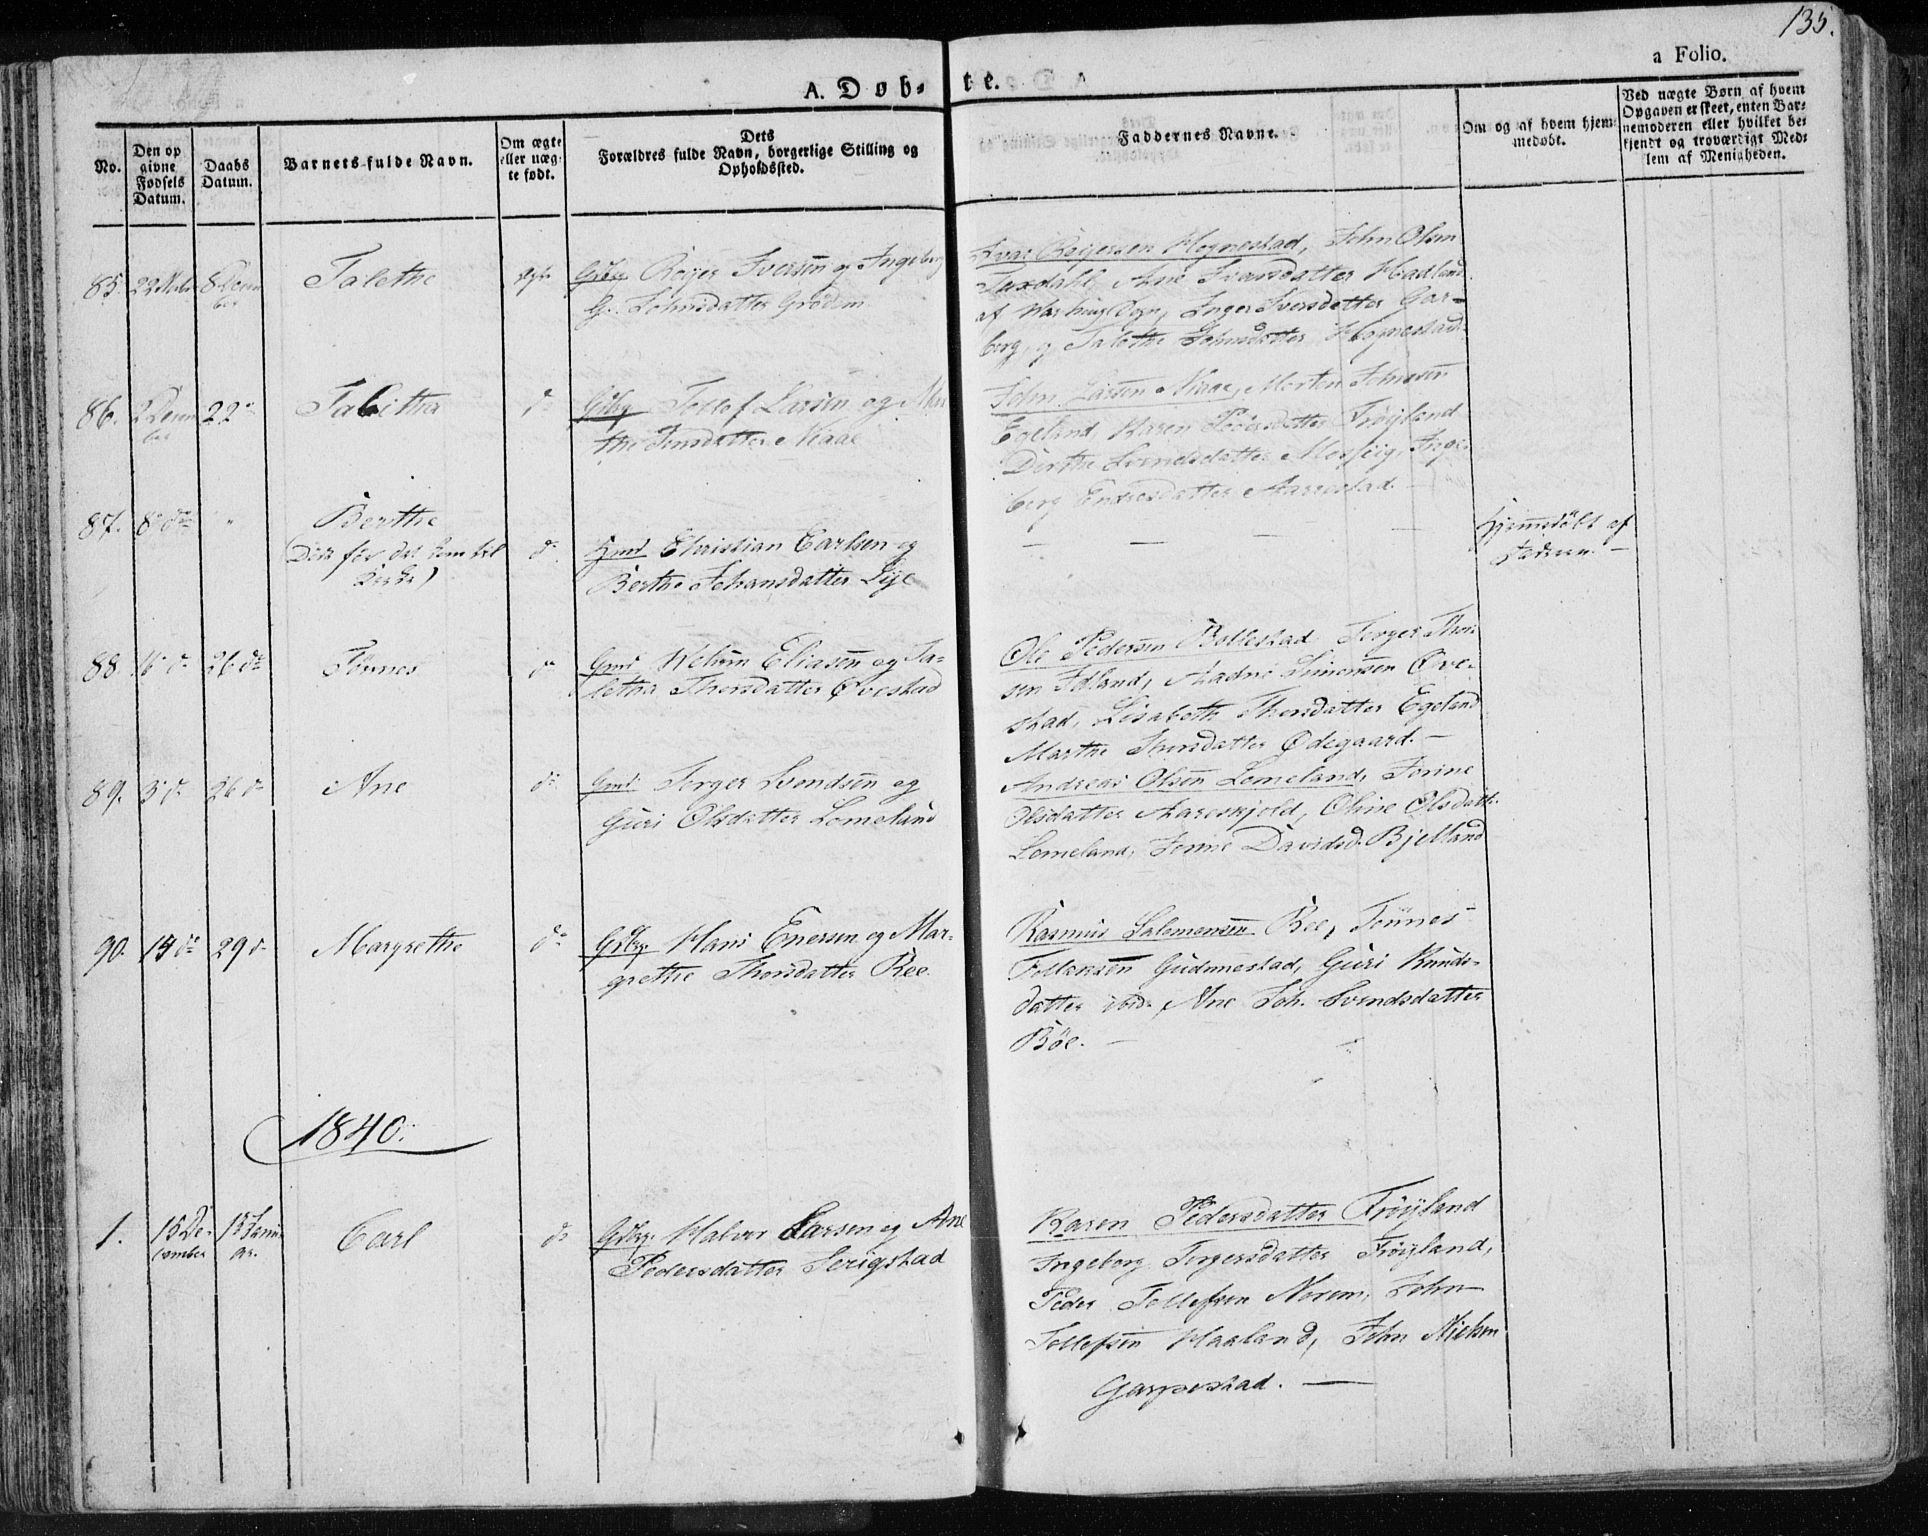 135.
a Folio.
A. Døb-
te.
No.
Den op
givne
Fødsels
Datum.
Daabs
Datum.
Barnets fulde Navn.
Om ægte
eller uæg-
te født.
Dets
Forældres fulde Navn, borgerlige Stilling og
Opholdssted.
Faddernes Navne.
Om og af hvem hjem-
medøbt.
Ved uægte Børn af hvem
Opgaven er skeet, enten Bar-
nemoderen eller hvilket be-
kjendt og troværdigt Med-
lem af Menigheden.
85. 22 8 Decem
ber
Talethe
Gdbr Reier Iversen og Ingeborg
G. Johnsdatter Grødem
Ivar Reiersen Hognestad, John Olsen
Taxdahl, Ane Ivarsdatter Hadland
af Sogn, Inger Iversdatter Gar-
borg, og Talethe Johnsdatter Hognestad
86. 2 Decem
ber
22 d
Tabitha
do
Gdbr Tollef Larsen og Mar
the Jonsdatter Niaae
John Larsen Niaae, Morten Johnsen
Egeland, Karen Pedersdatter Frøyland
Dorthe Svendsdatter Mossige, Inge-
borg Endresdatter Aarrestad. —
87. 8 do "
Berthe
(Døde før det kom til
Kirke)
do
Hmd Christian Carlsen og
Berthe Johansdatter Lye
— — — —
Hjemmedøbt af
Faderen. —
88. 16 d. 26 do
Tønnes
do
Gmd Eliasen og Ta-
letha Thorsdatter Øvestad
Ole Pedersen Bollestad Torger Thor-
sen Edland, Aadne Simonsen Øve-
stad, Lisabeth Thorsdatter Egeland
Marthe Thorsdatter Ødegaard. —
89. 5 d. 26 d.
Ane
do
Gmd Torger Svendsen og
Guri Olsdatter Lomeland
Andreas Olsen Lomeland, Torine
Olsdatter Aareskjold, Oline Olsdatt.
Lomeland, Davidsd. Bjelland
90. 14 do 29 d.
Margrethe
do
Gdbr. Hans Enersen og Mar-
grethe Thorsdatter Ree.
Rasmus Salomonsen Ree, Tønnes
Gudmestad, Guri Knuds-
datter ibid. Ane Joh. Svendsdatter
Bøe. —
1840.
1. 15 De-
cember
15 Janu
ar.
Carl
do
Gdbr. Halvor Larsen og Ane
Pedersdatter Serigstad
Karen Pedersdatter Frøyland
Ingeborg Torgersdatter Frøyland,
Peder Tollefsen Norem, John
Tollefsen Haaland, John Nielsen
Garpestad. —